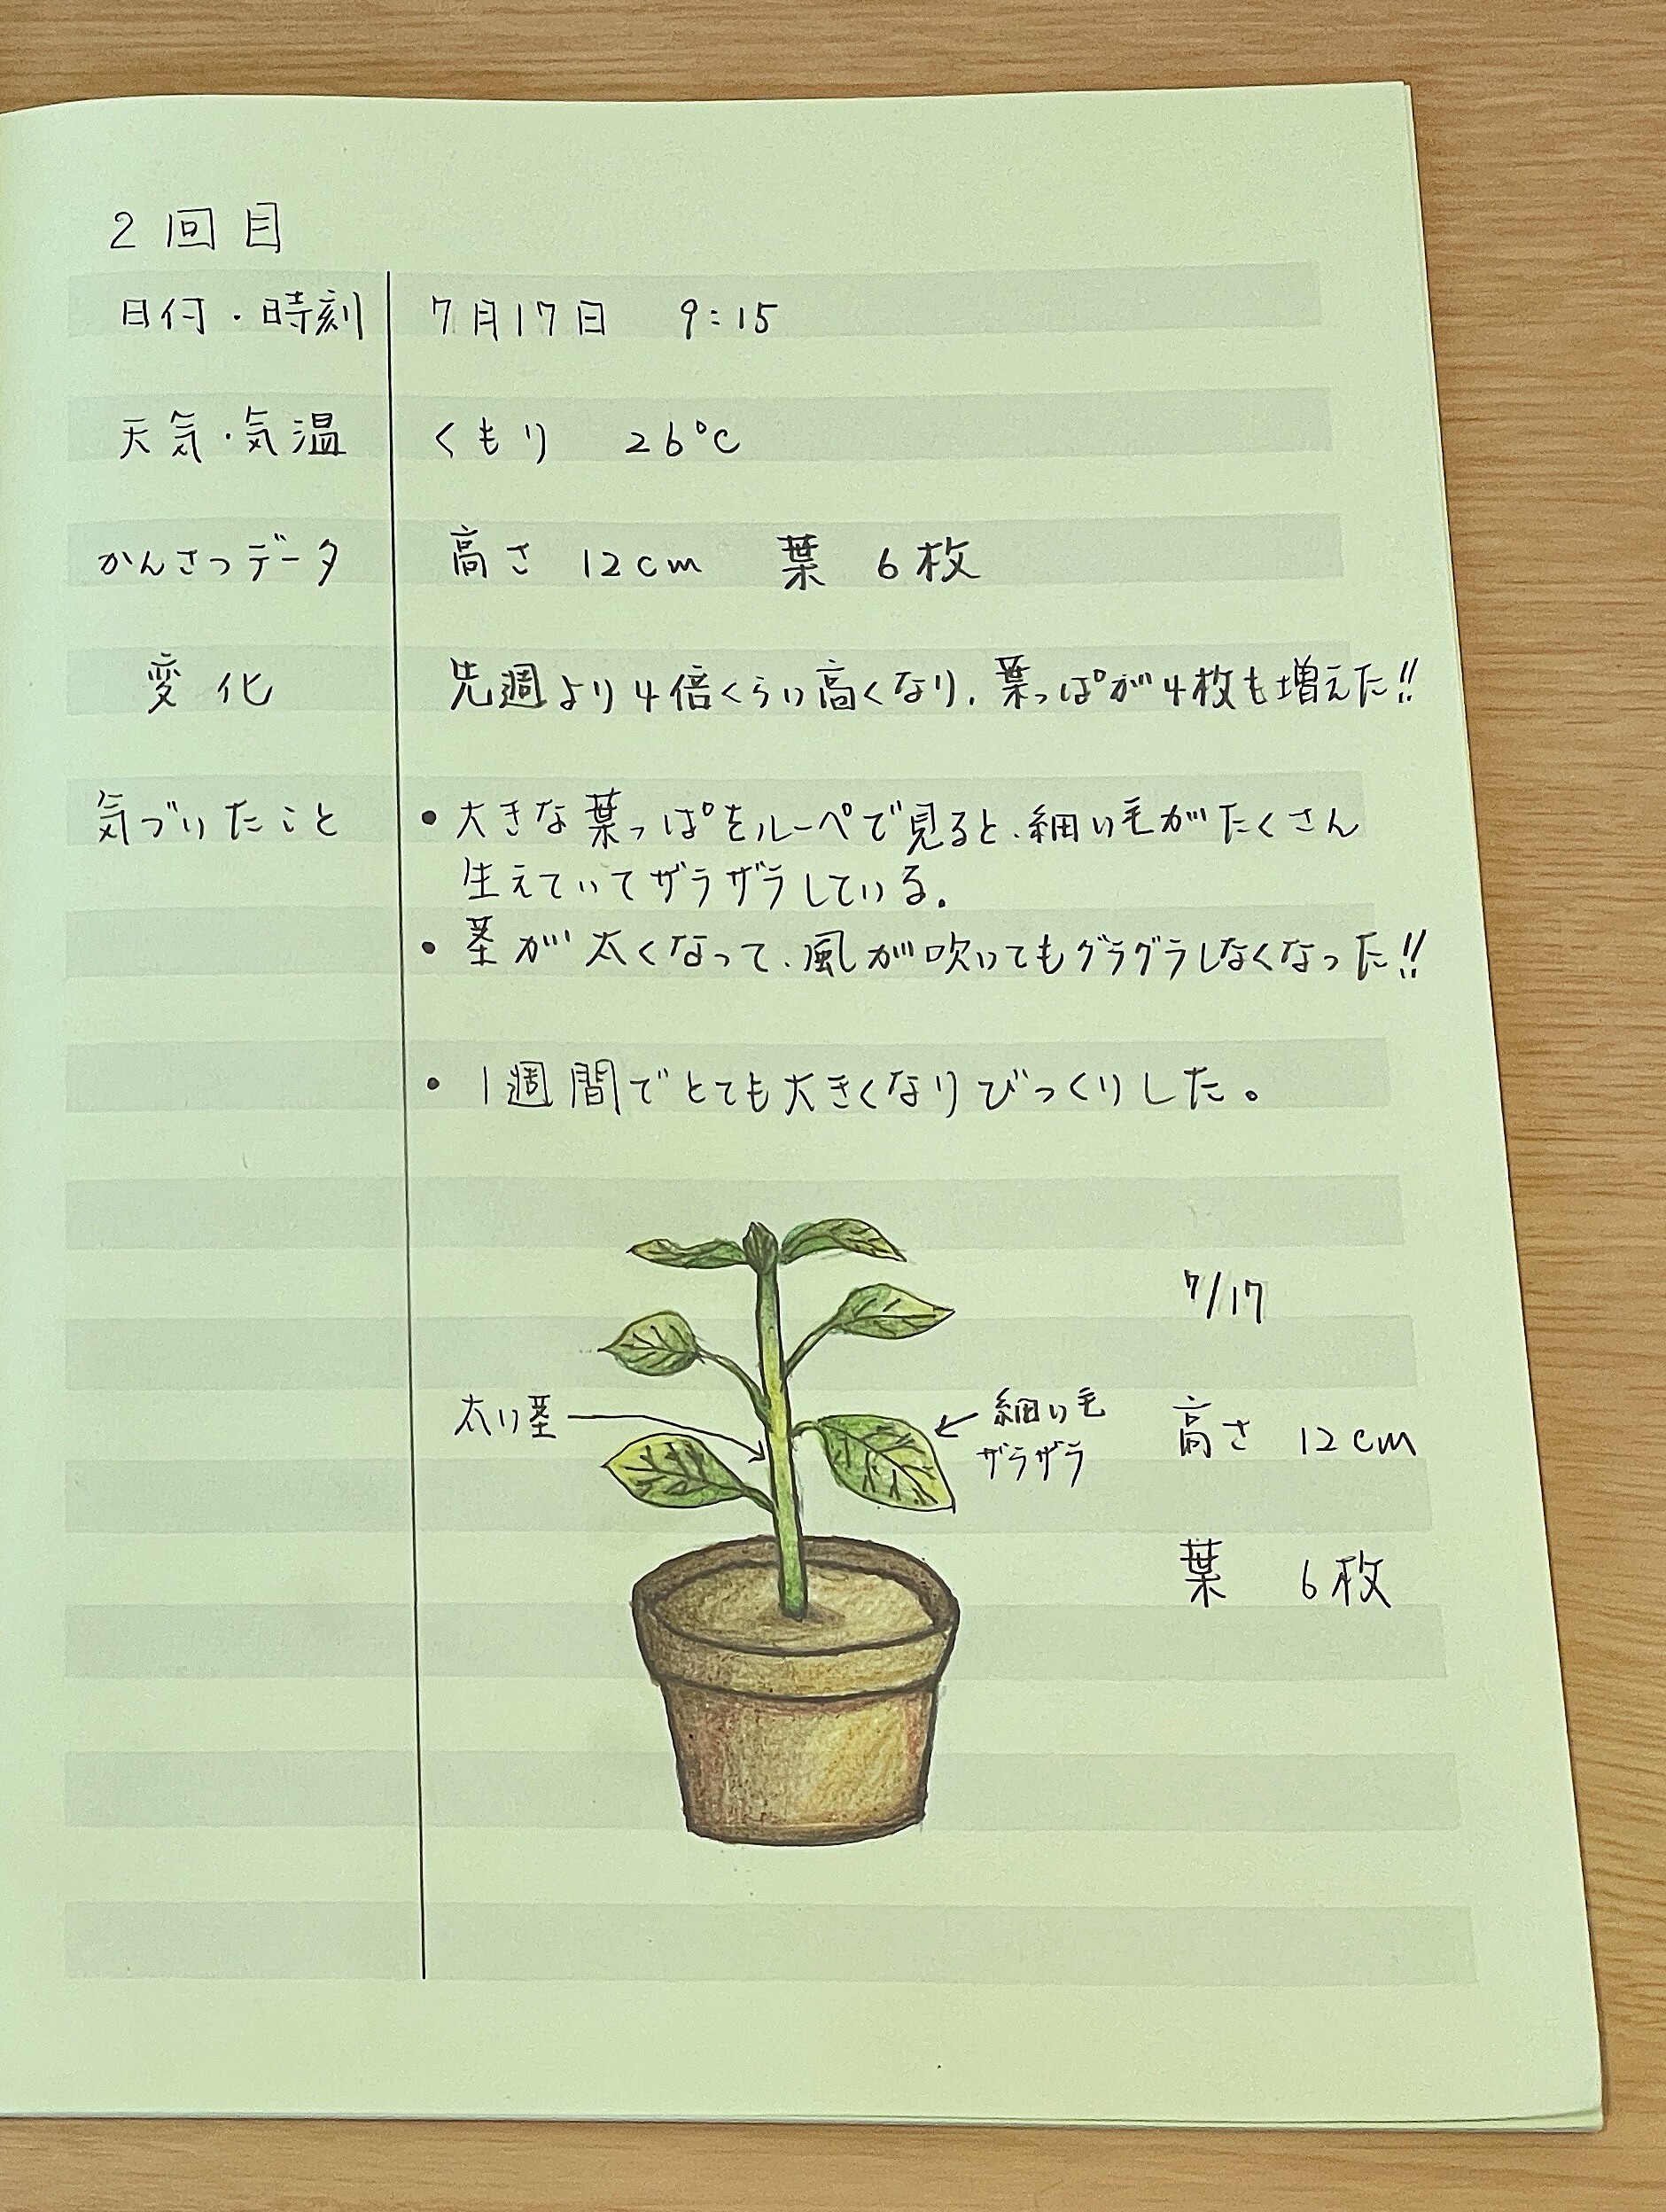 2回目
日付・時刻 7月17日 9:15
天気・気温 くもり 26℃
かんさつデータ 高さ 12cm 葉 6枚
変化 先週より4倍くらい高くなり、葉っぱが4枚も増えた!!
気づいたこと ・大きな葉っぱをルーペで見ると、細い毛がたくさん
生えていてザラザラしている。
・茎が太くなって、風が吹いてもグラグラしなくなった!!
・1週間でとても大きくなりびっくりした。
7/17
太い茎
細い毛
ザラザラ
高さ 12cm
葉 6枚